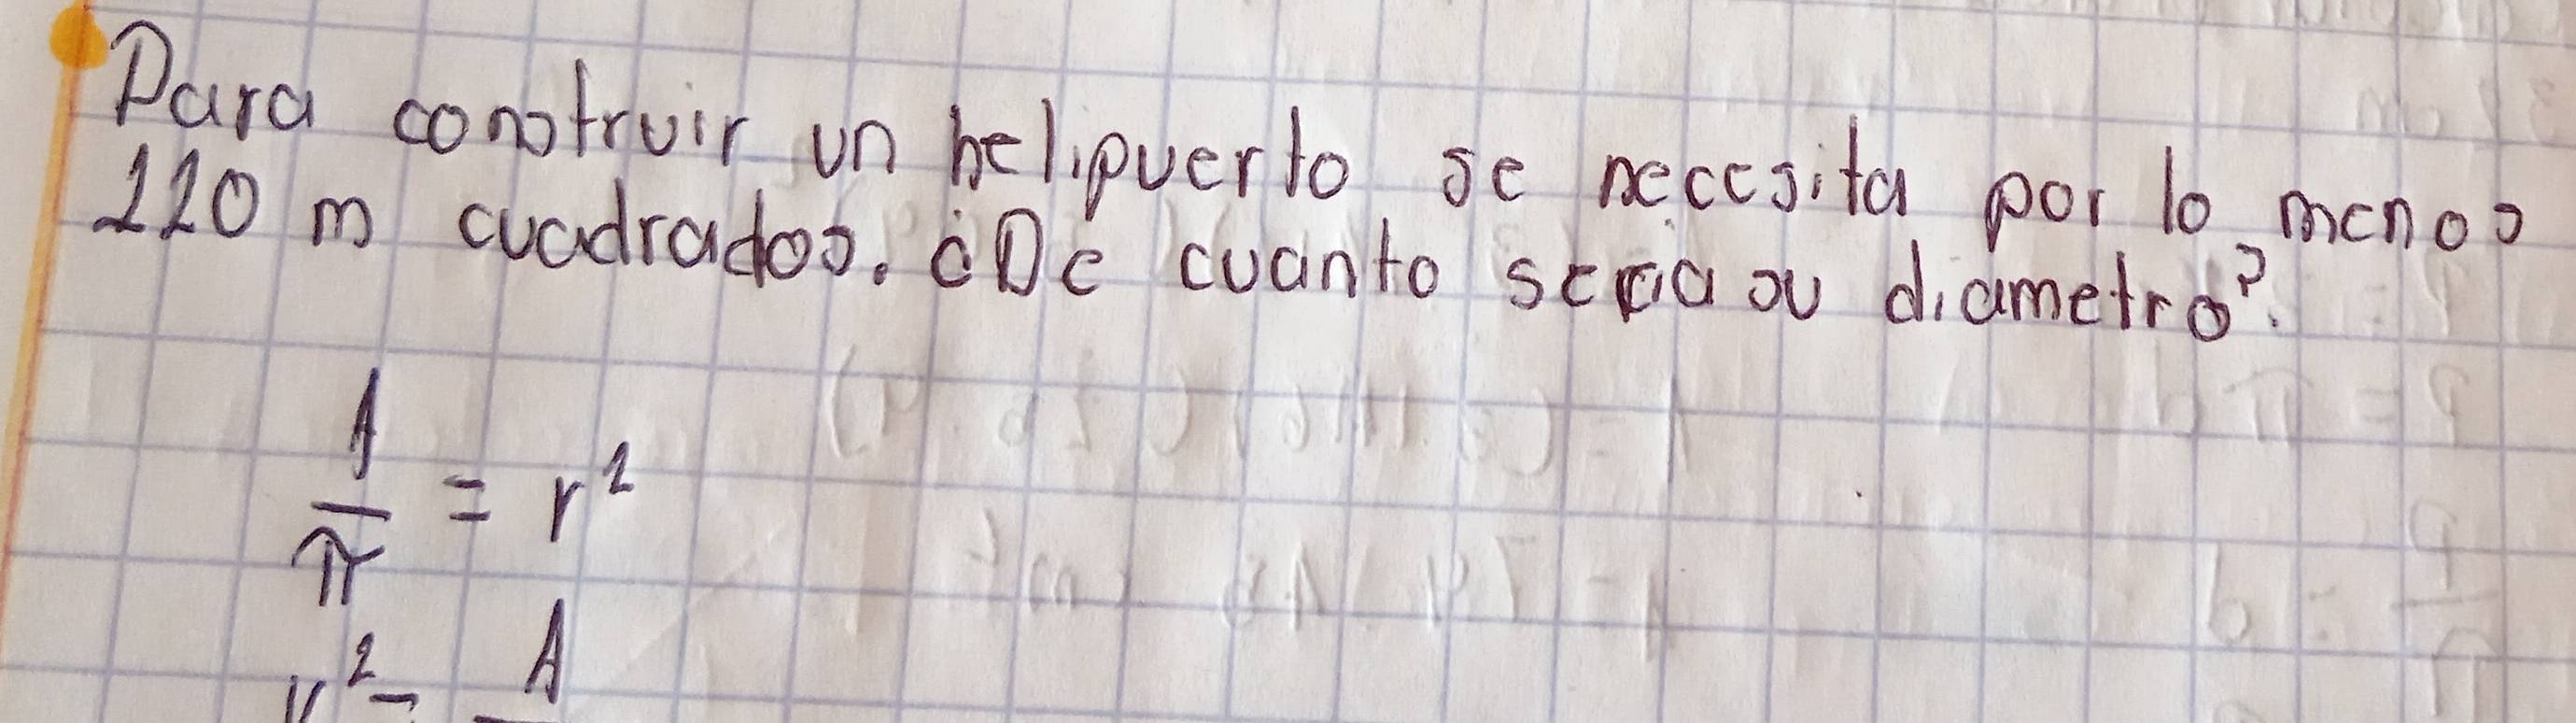 Para construir un helipuerto se necesita por lo menos
220 m cuadrados. ¿De cuanto seria su diametro?.
A
— = r²
π
r² = A